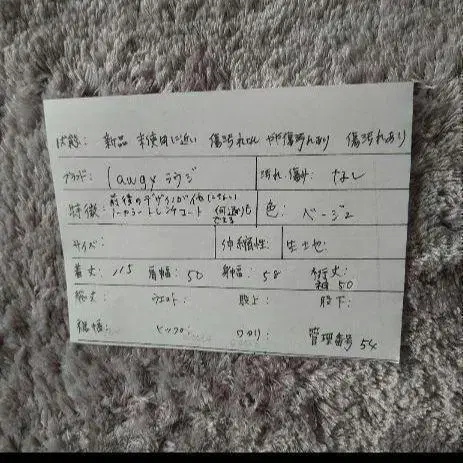 状態: 新品 未使用に近い 傷汚れなし やや傷汚れあり 傷汚れあり
ブランド: lawgy ラウジ 汚れ、傷み: なし
特徴: 前後のデザインが他にない
ノーカラートレンチコート 何通りも 色: ベージュ
サイズ: 伸縮性: 生地:
着丈: 115 肩幅: 50 身幅: 58 裄丈:
袖 50
総丈: ウエスト: 股上: 股下:
裾幅: ヒップ: ワタリ: 管理番号 54